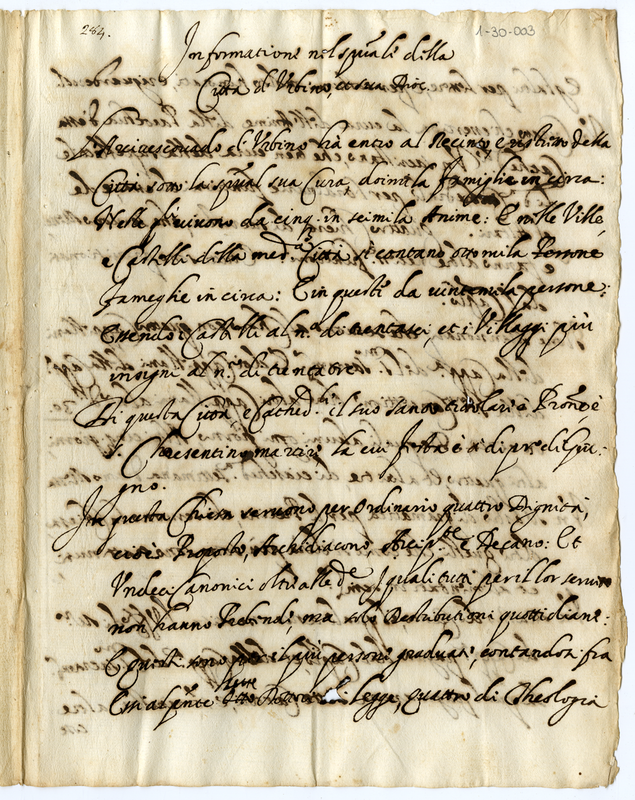 284.
1-30-003
Informatione nel spirituale della
Città d'Urbino, et sua Dioc.
Arcivescovado d'Urbino hà entro al Recinto e ristretto della
Città sotto la sua Cura doimila famiglie in circa:
Nelle vivono da cinq. in seimila Anime: E nelle Ville,
e Castelli della med.a Città si contano otto mila
fameghe in circa: E in questi da vintemila persone:
Essendo i Castelli al n.o di trentasei, et i Villaggi più
insigni al n.o di trentatre.
Di questa Città, e Cathed.le il suo santo titolare e
S. Chresentino martire, la cui festa è a di p.o di Giu:
gno.
In questa Chiesa servono per Ordinario quattro Dignità,
cioè Proposto, Archidiacono, Arcip.te e Decano: Et
Undeci Canonici oltre alle d.e I quali tutti per il lor servitio
non hanno Prebende, ma solo Destributioni quottidiane:
E questi sono il più persone graduate, contandosi fra
Essi al p.nte sette legge, quattro di Theologia